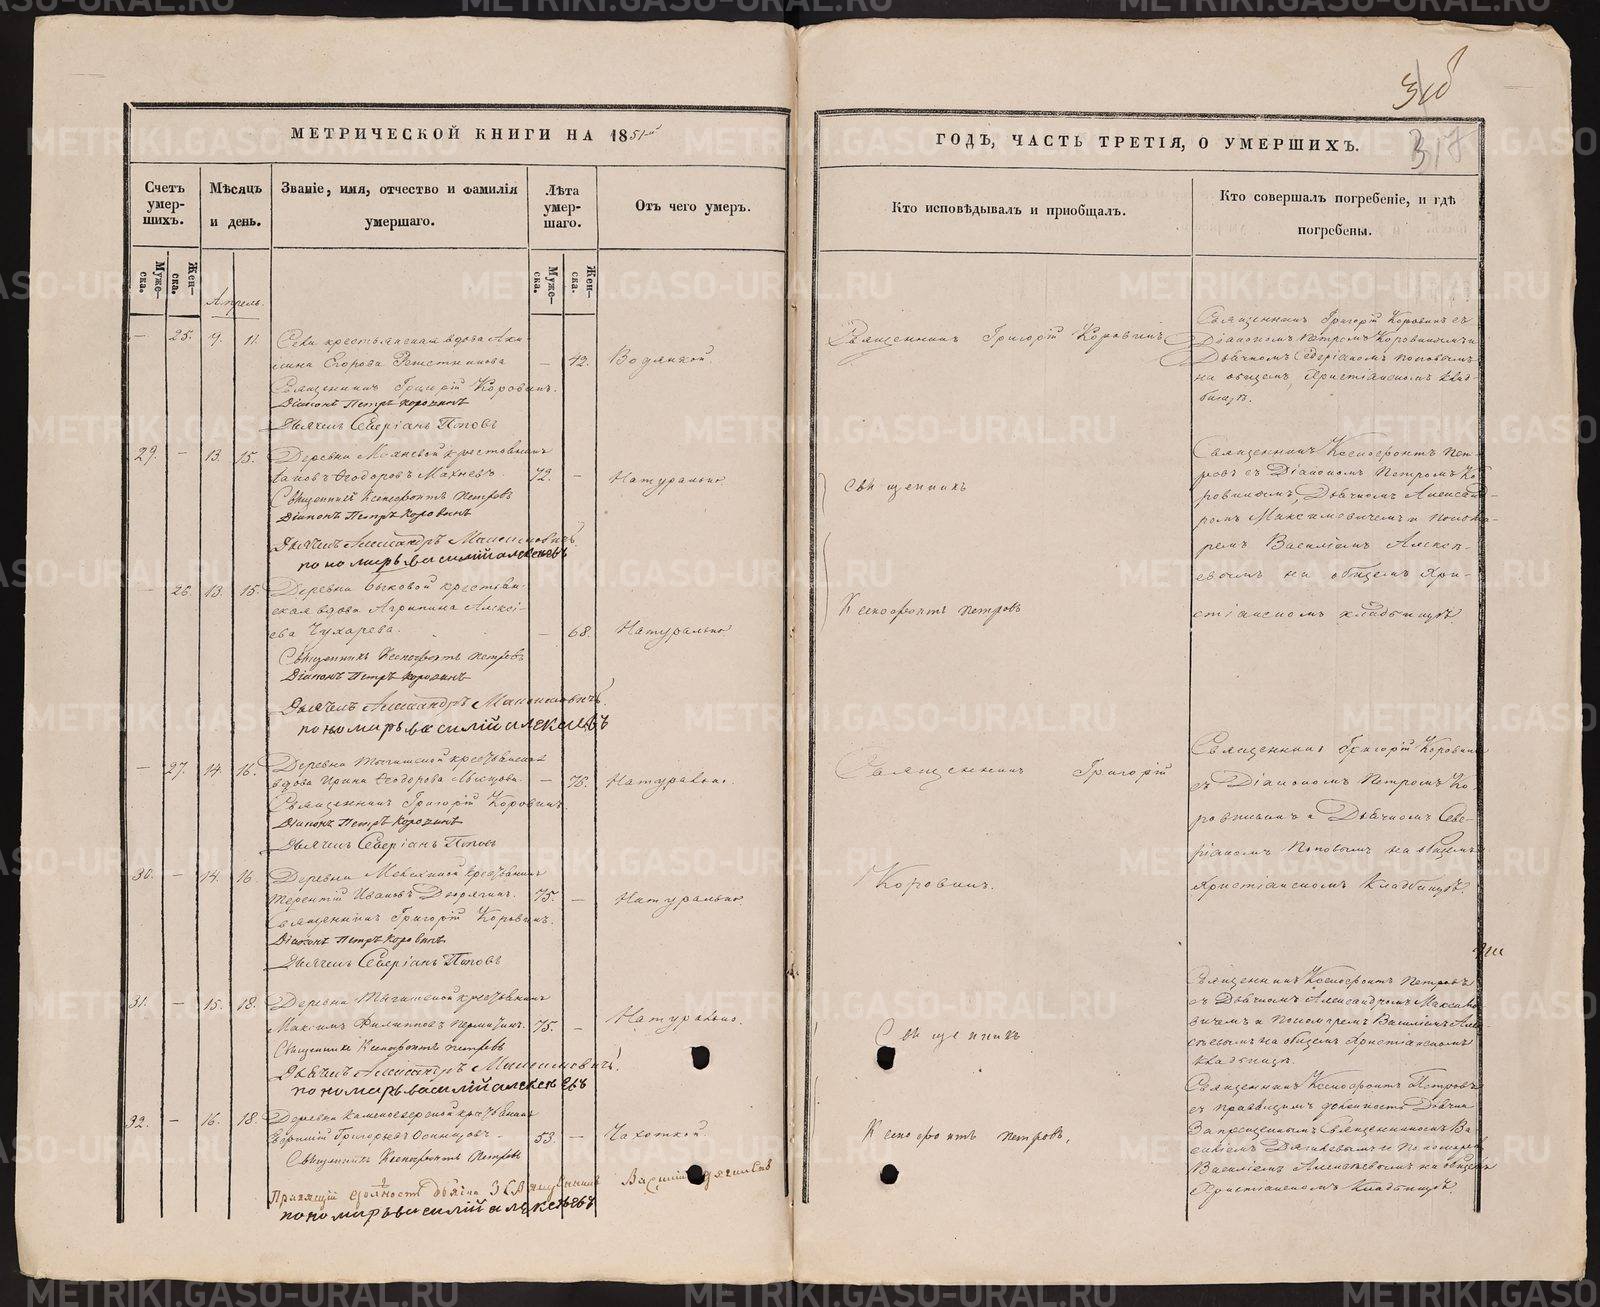 МЕТРИЧЕСКОЙ КНИГИ НА 1851й
ГОДЪ, ЧАСТЬ ТРЕТІЯ, О УМЕРШИХЪ.
317
Счетъ умер-
шихъ.
Мѣсяцъ
и день.
Званіе, имя, отчество и фамилія
умершаго.
Лѣта
умер-
шаго.
Отъ чего умеръ.
Кто исповѣдывалъ и пріобщалъ.
Кто совершалъ погребеніе, и гдѣ
погребены.
Муже-
ска.
Жен-
ска.
Апрель.
Муже-
ска.
Жен-
ска.
— 25. 9. 11.
Села крестьянская вдова Аки-
лина Егорова
— 42. Водянкой.
Священникъ Григорій Коровинъ.
Діаконъ Петръ Коровинъ
Дьячекъ Северіанъ Поповъ
Священникъ Григорій Коровинъ
Священникъ Григорій Коровинъ съ
Діакономъ Петромъ Коровинымъ и
Дьячкомъ Северіаномъ Поповымъ
на общемъ Христіанскомъ клад-
бищѣ.
29. — 13. 15.
Деревни Махневой крестьянинъ
Іаковъ Ѳеодоровъ Махневъ
72. — Натурально
Священникъ Ксенофонтъ Петровъ
Діаконъ Петръ Коровинъ
Дьячекъ Александръ Максимовичъ
пономарь василій алексѣевъ
Священникъ
Ксенофонтъ Петровъ
Священникъ Ксенофонтъ Пет-
ровъ съ Діакономъ Петромъ Ко-
ровинымъ, Дьячкомъ Александ-
ромъ Максимовичемъ и Понома-
ремъ Василіемъ Алексѣ-
евымъ на общемъ Хри-
стіанскомъ кладбищѣ
— 26. 13. 15.
Деревни Быковой крестьян-
ская вдова Агрипина Алексѣ-
ева Чухарева.
— 68. Натурально
Священникъ Ксенофонтъ Петровъ
Діаконъ Петръ Коровинъ
Дьячекъ Александръ Максимовичъ.
пономарь василій алексѣевъ
— 27. 14. 16.
Деревни крестьянская
вдова Ирина Ѳеодорова
— 78. Натурально.
Священникъ Григорій Коровинъ
Діаконъ Петръ Коровинъ
Дьячекъ Северіанъ Поповъ
Священникъ Григорій
Коровинъ.
Священникъ Григорій Коровинъ
съ Діакономъ Петромъ Ко-
ровинымъ и Дьячкомъ Севе-
ріаномъ Поповымъ на общемъ
Христіанскомъ Кладбищѣ.
30. — 14. 16.
Деревни крестьянинъ
Терентій Ивановъ
75. — Натурально
Священникъ Григорій Коровинъ.
Діаконъ Петръ Коровинъ
Дьячекъ Северіанъ Поповъ
31. — 15. 18.
Деревни крестьянинъ
Максимъ Филипповъ
75. — Натурально.
Священникъ Ксенофонтъ Петровъ
Дьячекъ Александръ Максимовичъ.
пономарь василій алексѣевъ
Священникъ
Ксенофонтъ Петровъ.
Священникъ Ксенофонтъ Петровъ
съ Дьячкомъ Александромъ Максимо-
вичемъ и Пономаремъ Василіемъ Алек-
сѣевымъ на общемъ Христіанскомъ
кладбищѣ.
32. — 16. 18.
Деревни Каменоозерской крестьянинъ
Григорьевъ Осинцовъ.
53. — Чахоткой.
Священникъ Ксенофонтъ Петровъ
Правящій должность дьячка Священникъ Василій
пономарь василій алексѣевъ
Священникъ Ксенофонтъ Петровъ
съ правящимъ должность Дьячка
Запрещеннымъ Священникомъ Ва-
силіемъ и Пономаремъ
Василіемъ Алексѣевымъ на общемъ
Христіанскомъ Кладбищѣ.
METRIKI.GASO-URAL.RU